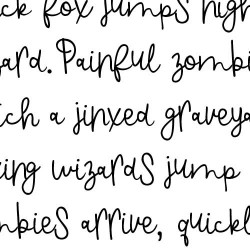 ck fox jumps high
ard. Painful zombi
ch a jinxed graveya
ing wizards jump
mbies arrive, quickl